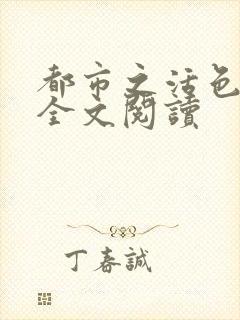 都市之活色
全文閱讀
丁春誠